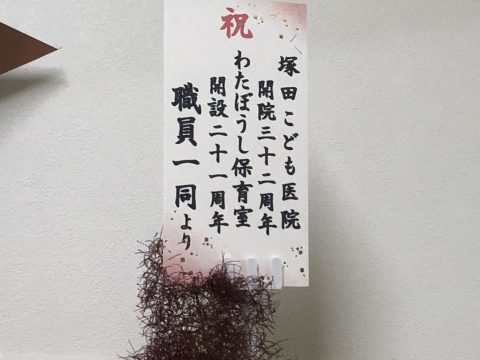 祝
塚田こども医院
開院三十二周年
わたぼうし保育室
開設二十一周年
職員一同より